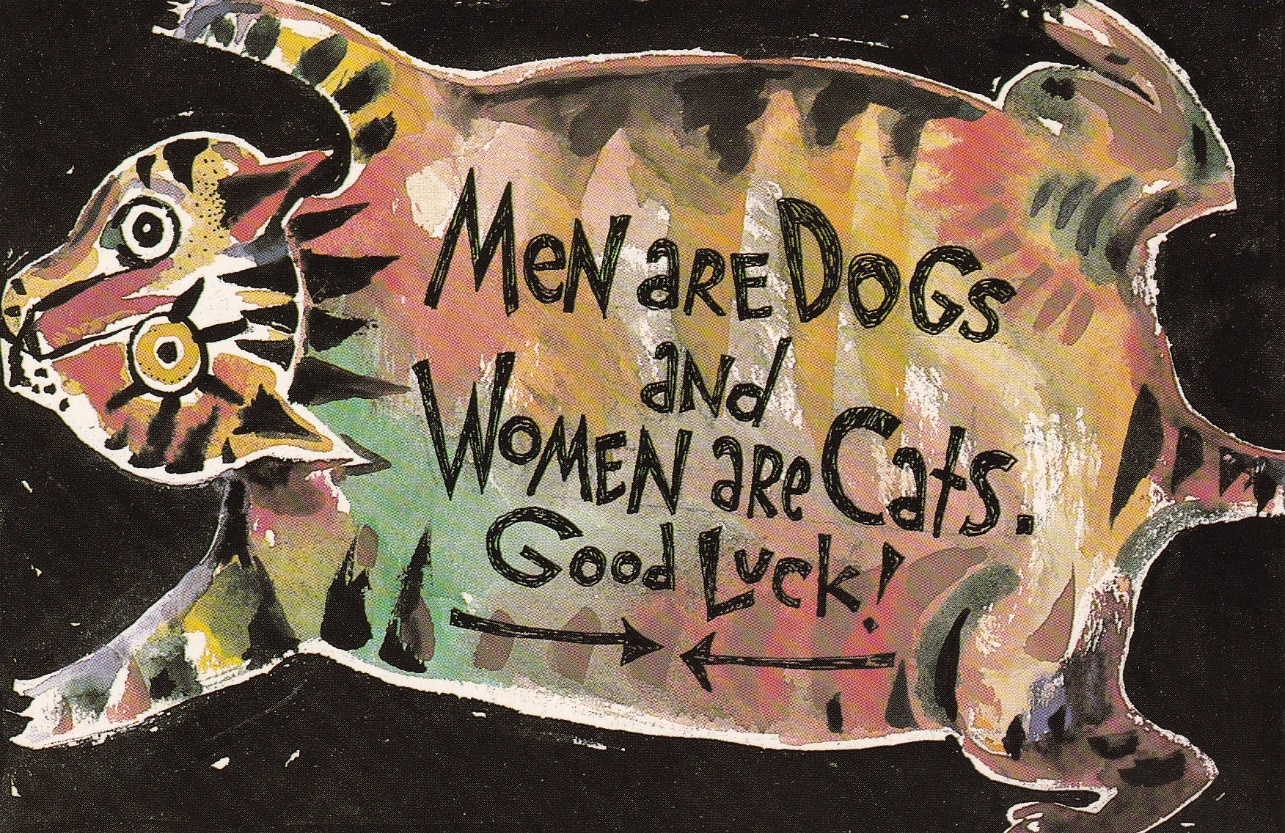 Men are Dogs
and
Women are Cats.
Good Luck!